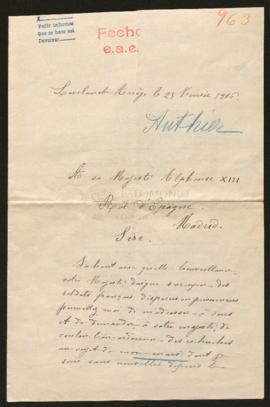 963
A
Pedir informes
Que se hace acá
Devolver
Fecho
e.a.e.
Lavelanet Ariège le 28 Février 1915
Authier
A sa Majesté Alphonse XIII
Roi d'Espagne
Madrid.
Sire.
Sachant avec quelle bienveillance
votre Majesté daigne s'occuper des
soldats français disparus ou prisonniers
permettez moi de m'adresser à vous
et de demander à votre majesté, de
vouloir bien ordonner des recherches
au sujet de mon mari dont je
suis sans nouvelles depuis le